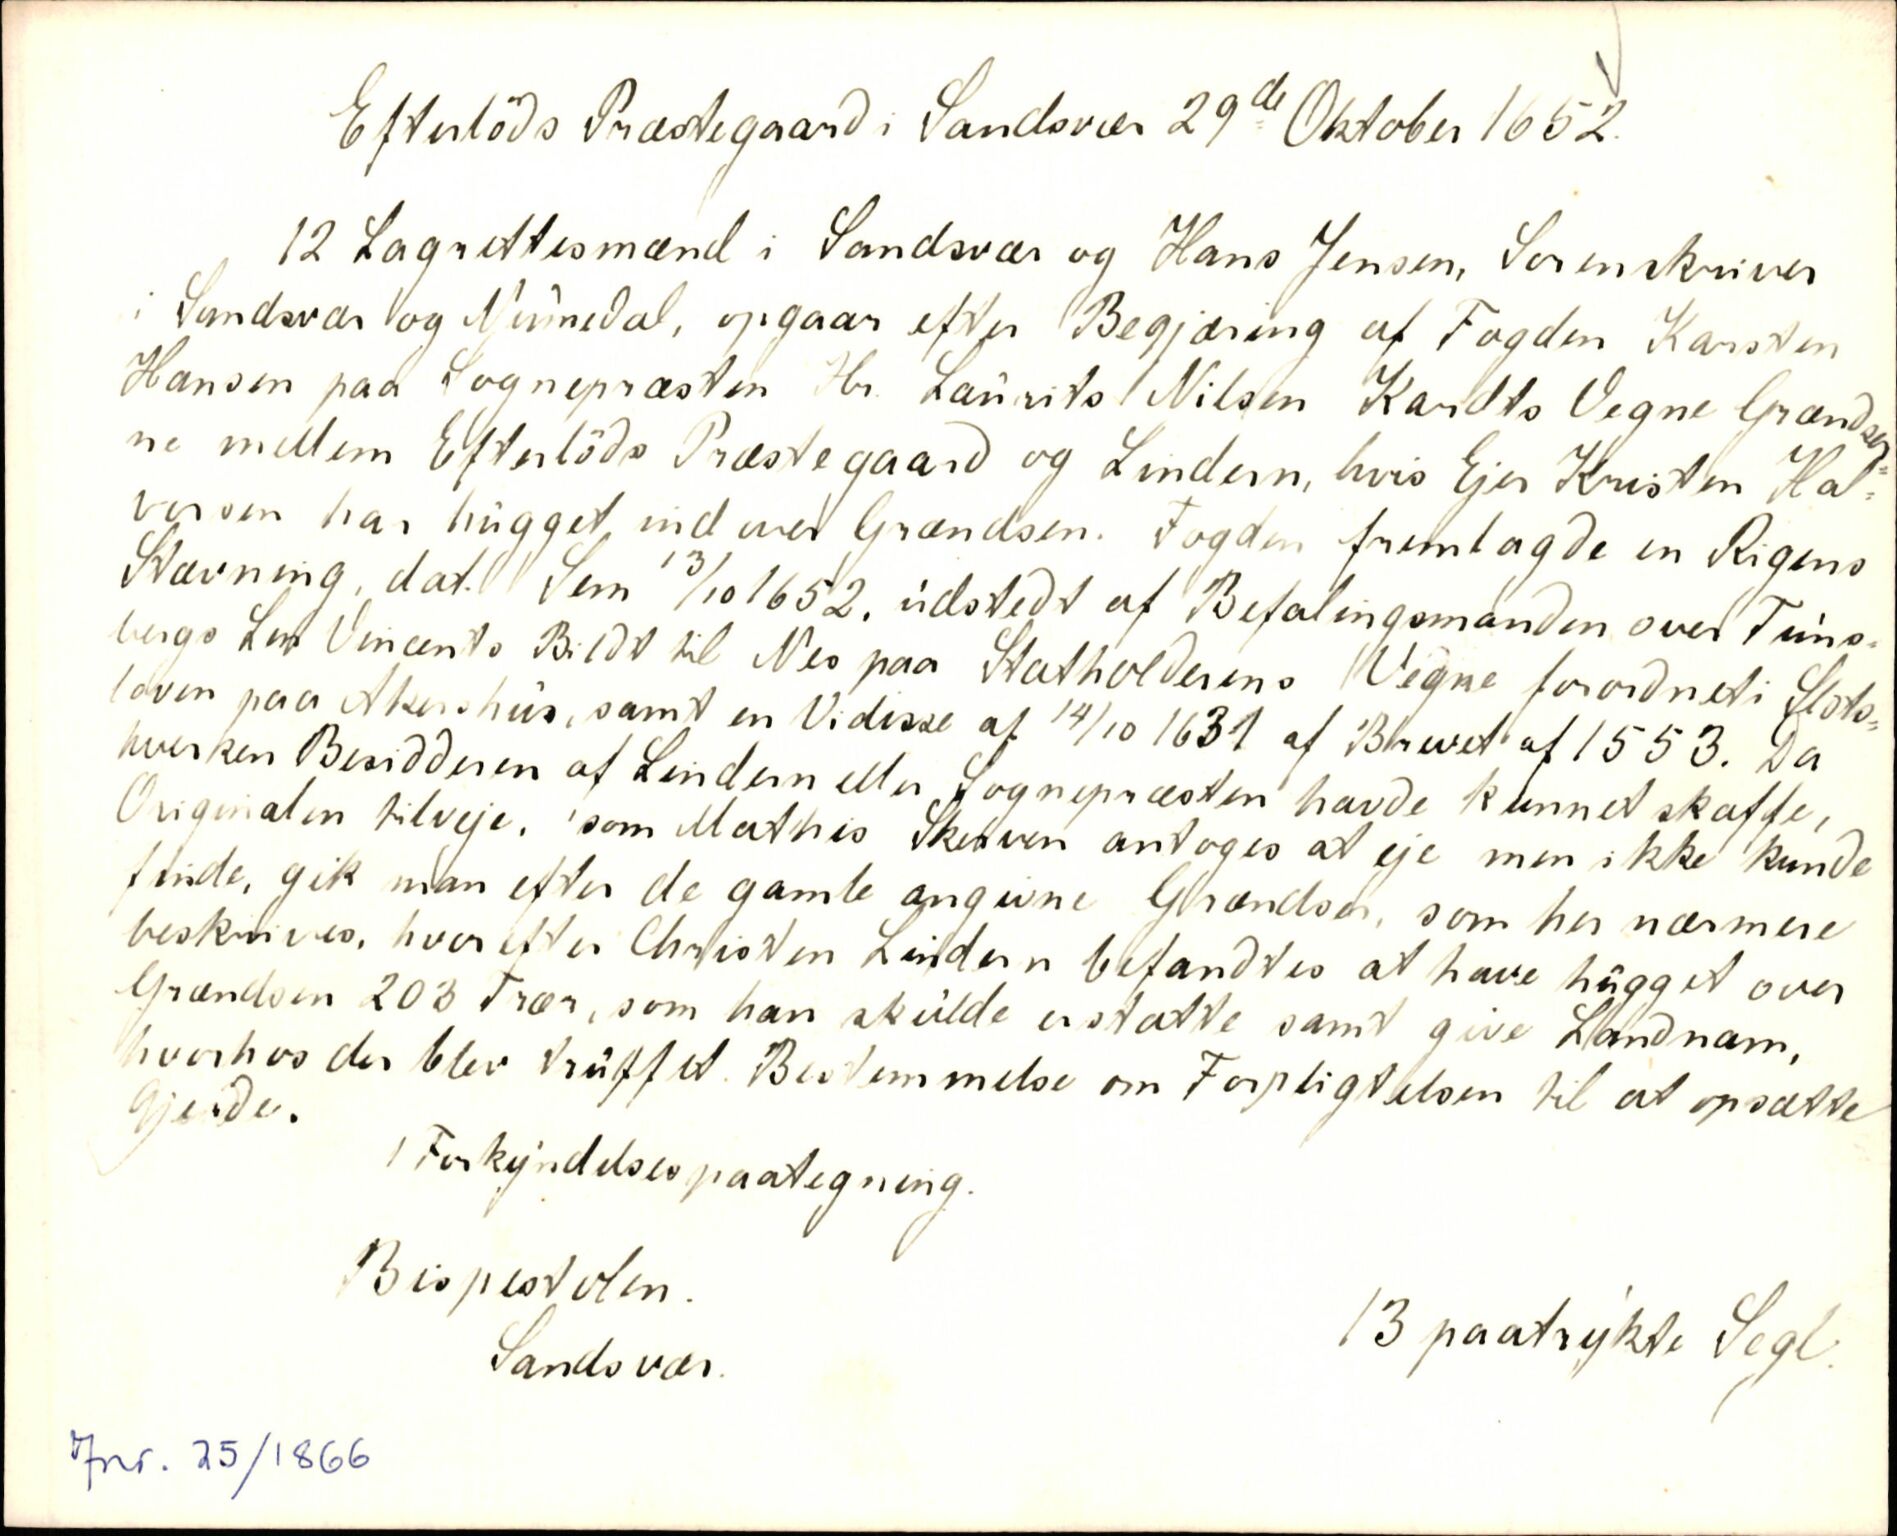 Efterlöds Præstegaard i Sandsvær 29de Oktober 1652.
12 Lagrettesmænd i Sandsvær og Hans Jensen, Sorenskriver
i Sandsvær og Nümedal, opgaar efter Begjæring af Fogden Karsten
Hansen paa Sognepræsten Hr. Laurits Nilsen Kardts Vegne Grændser=
ne mellem Efterlöds Præstegaard og Lindern, hvis Ejer Kristen Hal=
vorsen har hügget ind over Grændsen. Fogden fremlagde en Rigens
Stævning, dat. Sem 13/10 1652, üdstedt af Befalingsmanden over Tüns=
bergs Len Vincents Bildt til Nes paa Statholderens Vegne forordnet i Slots=
loven paa Akershüs, samt en Vidisse af 14/10 1631 af Brevet af 1553. Da
hverken Besidderen af Lindern eller Sognepræsten havde kunnet skaffe,
Originalen tilveje, som Mathis Skerven antoges at eje men ikke kunde
finde, gik man efter de gamle angivne Grændser, som her nærmere
beskrives, hvorefter Christen Lindern befandtes at have hügget over
Grændsen 203 Trær, som han skülde erstatte samt give Landnam,
hvorhos der blev trüffet Bestemmelse om Forpligtelsen til at opsætte
Gjerde.
1 Forkyndelsespaategning.
Bispestolen.
Sandsvær.
13 paatrykte Segl.
Jnr. 25/1866